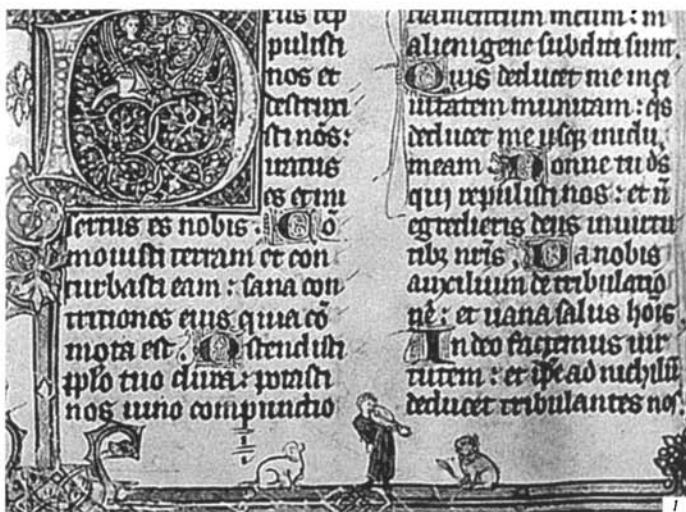 Deus rep
pulisti
nos et
destruxi
sti nos:
iratus
es et mi
sertus es nobis: Cō
mouisti terram et con
turbasti eam: sana con
tritiones eius quia cō
mota est Ostendisti
pplo tuo dura: potasti
nos uino compunctio
riamentum meum: m
alienigene subditi sunt.
Quis deducet me in ci
uitatem munitam: qis
deducet me usq; in idu
meam Nonne tu ds
qui repulisti nos: et n̄
egredieris deus in uirtu
tibz nr̄is Da nobis
auxilium de tribulatio
nē: et uana salus hōis
In deo faciemus uir
tutem: et ipē ad nichilū
deducet tribulantes nos.
1